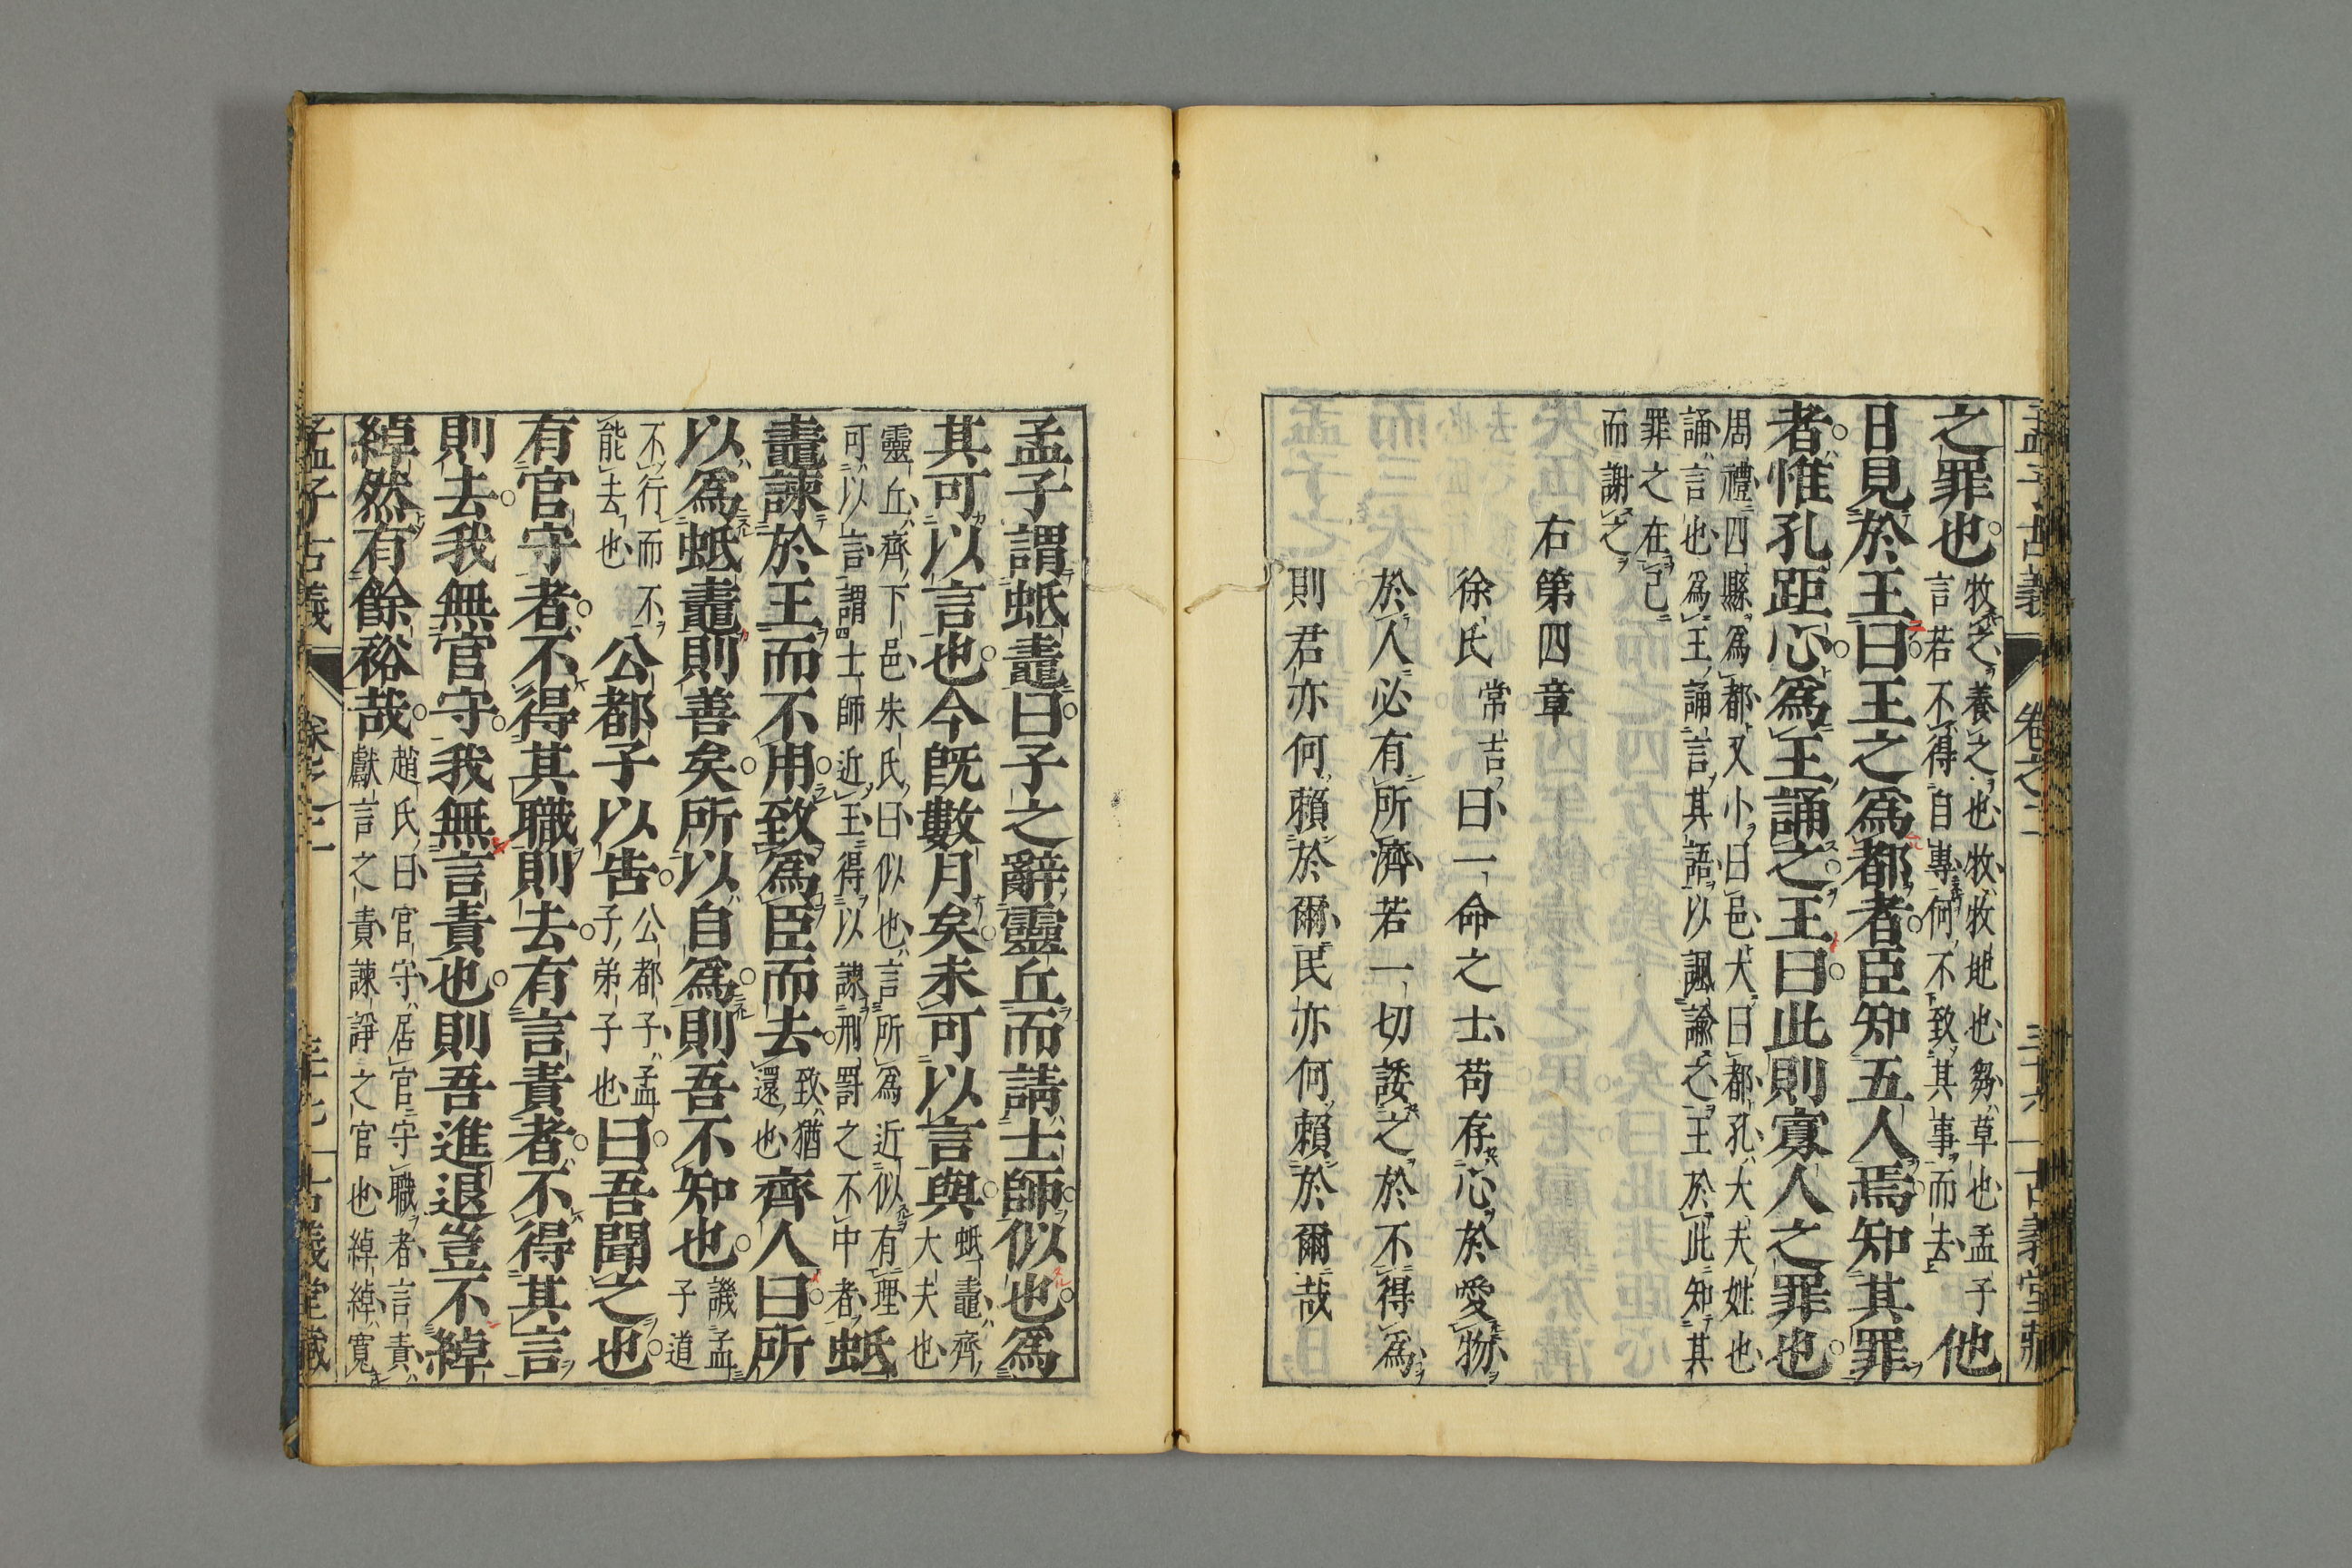 孟子古義
卷之二
三十六
古義堂藏
之罪也。牧之養之也牧牧地也芻草也孟子
言若不得自專何不致其事而去他
日見於王曰王之爲都者臣知五人焉知其罪
者惟孔距心爲王誦之王曰此則寡人之罪也
周禮四縣爲都又小曰邑大曰都孔大夫姓也
誦言也爲王誦言其語以諷諭之王於此知其
罪之在己
而謝之
右第四章
徐氏常吉曰一命之士苟存心於愛物
於人必有所濟若一切諉之於不得爲
則君亦何賴於爾民亦何賴於爾哉
孟子謂蚳鼃曰子之辭靈丘而請士師似也爲
其可以言也今既數月矣未可以言與蚳鼃齊
大夫也
靈丘齊下邑朱氏曰似也言所爲近似有理
可以言謂士師近王得以諫刑罰之不中者蚳
鼃諫於王而不用致爲臣而去致猶
還也齊人曰所
以爲蚳鼃則善矣所以自爲則吾不知也譏孟
子道
不行而不
能去也公都子以告公都子孟
子弟子也曰吾聞之也
有官守者不得其職則去有言責者不得其言
則去我無官守我無言責也則吾進退豈不綽
綽然有餘裕哉趙氏曰官守居官守職者言責
獻言之責諫諍之官也綽綽寬
孟子古義
卷之二
三十七
古義堂藏